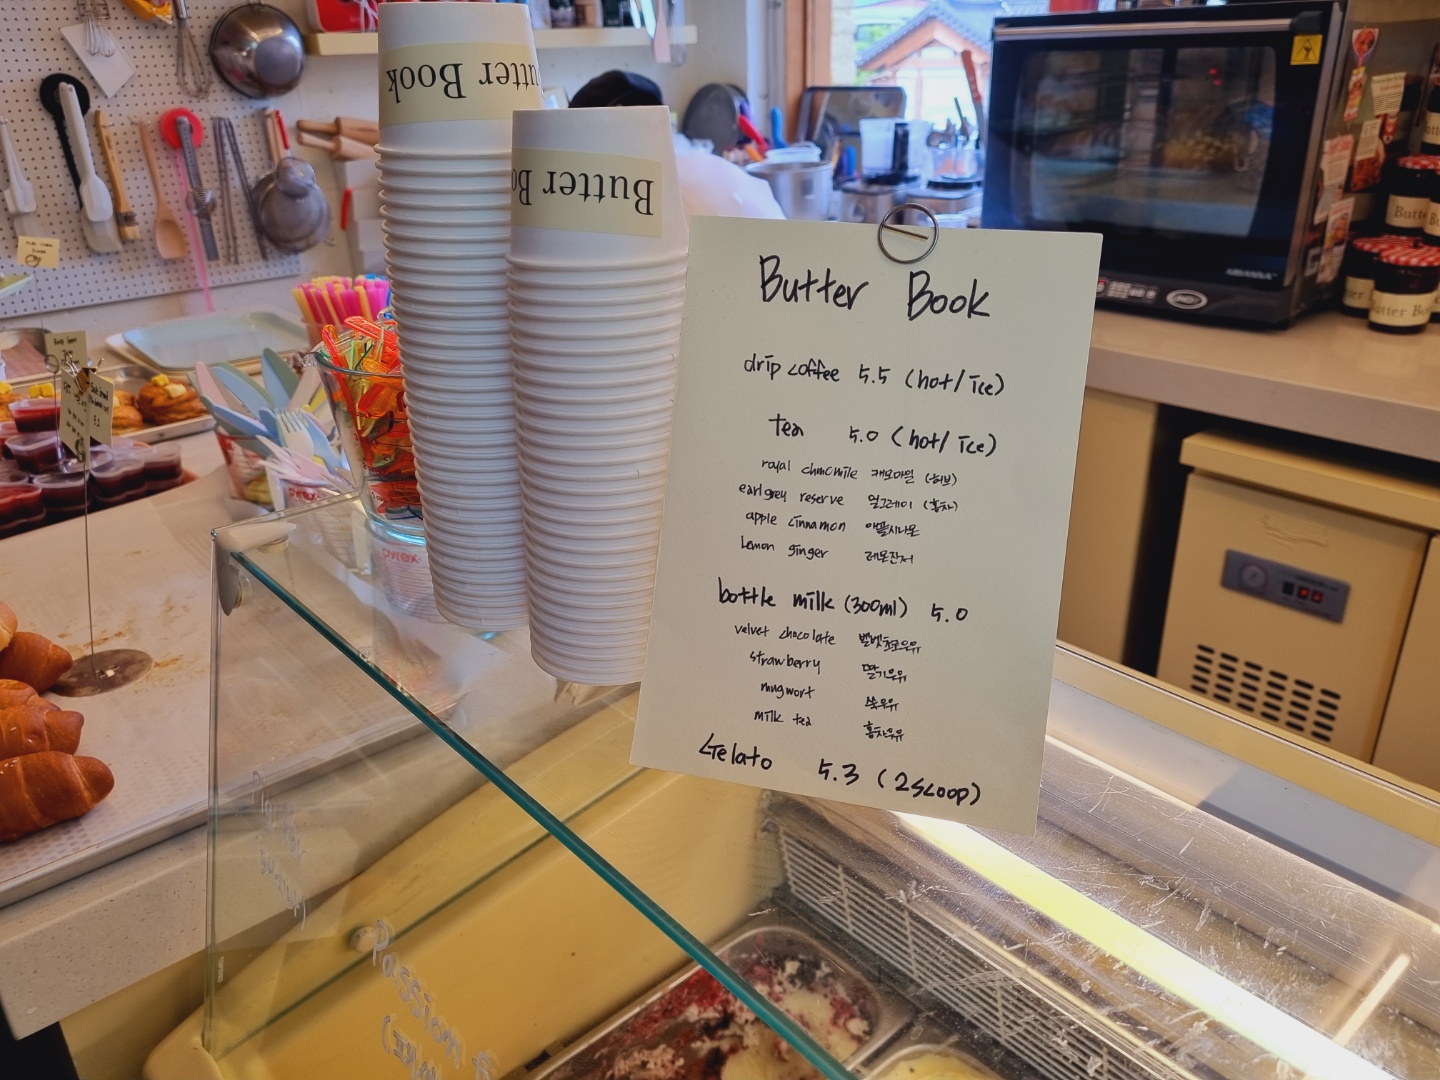 Butter Book
Butter Bo
Butter Book
drip coffee 5.5 (hot/ice)
tea 5.0 (hot/ice)
royal chmomile 캐모마일 (허브)
earlgrey reserve 얼그레이 (홍차)
apple cinnamon 애플시나몬
Lemon ginger 레몬진저
bottle milk (300ml) 5.0
velvet chocolate 벨벳초코우유
strawberry 딸기우유
mugwort 쑥우유
milk tea 홍차우유
Gelato 5.3 (2scoop)
Passion
pyrex